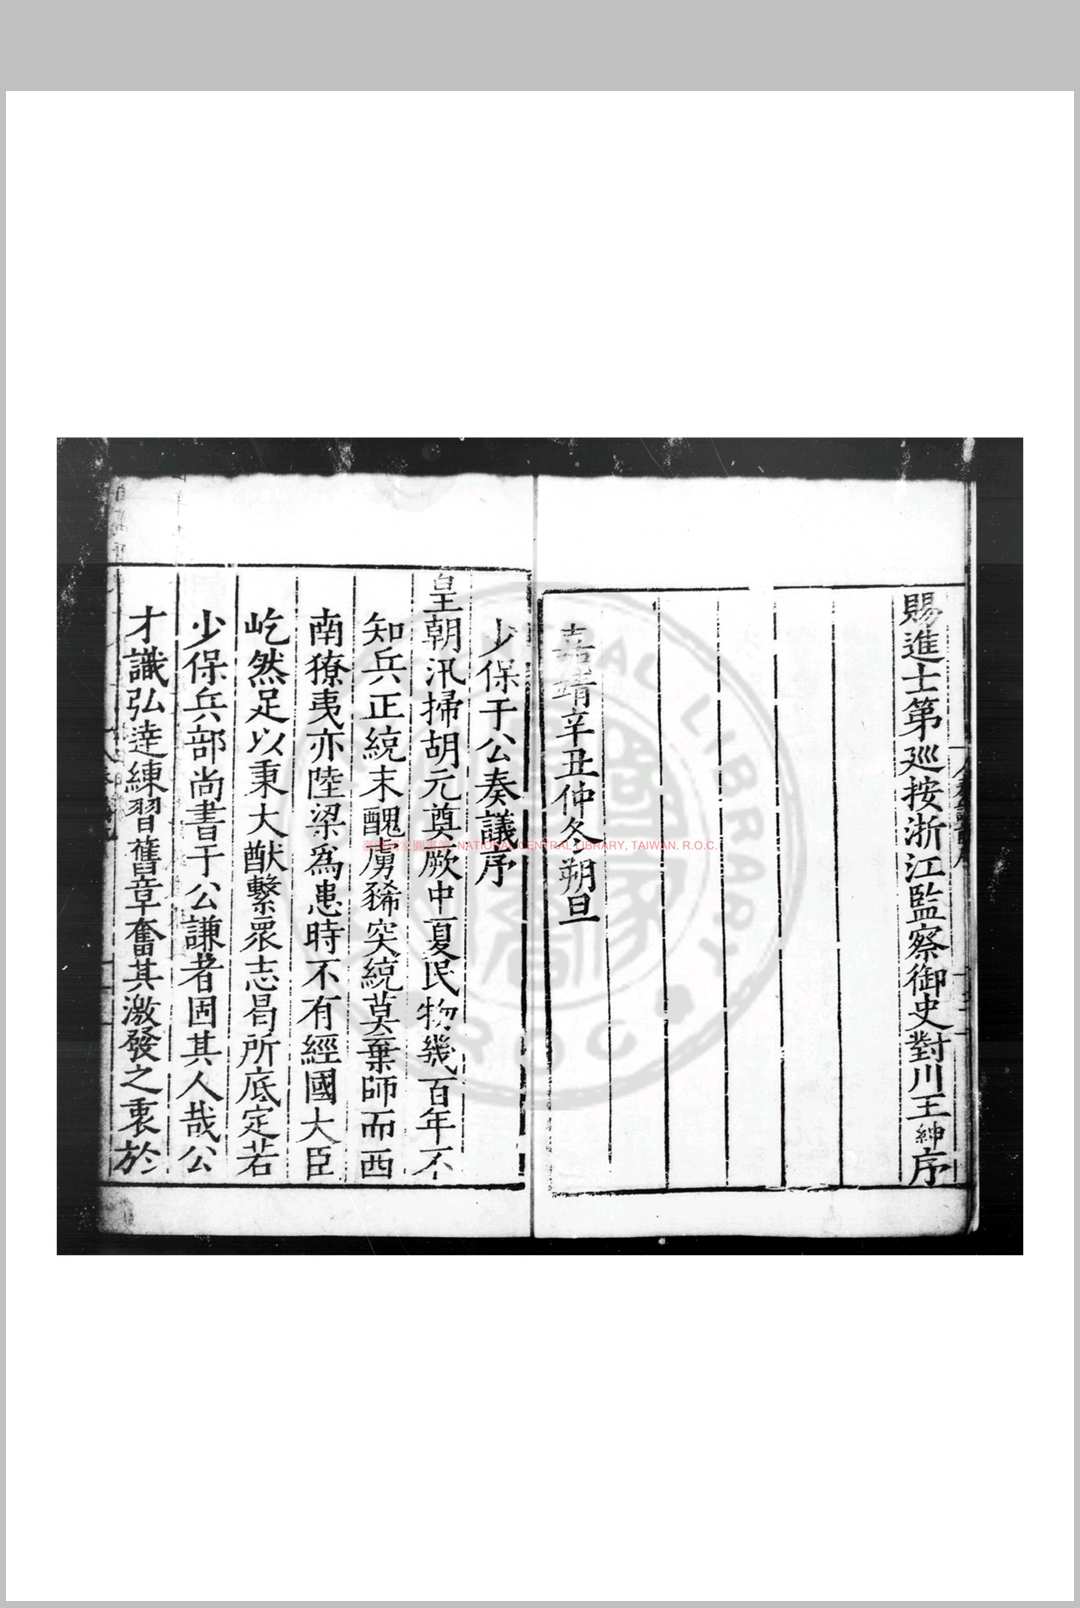 賜進士第廵按浙江監察御史對川王紳序
嘉靖辛丑仲冬朔旦
少保于公奏議序
皇朝汛掃胡元奠厥中夏民物幾百年不
知兵正統末醜虜豨突統莫棄師而西
南獠夷亦陸梁為患時不有經國大臣
屹然足以秉大猷繫眾志曷所底定若
少保兵部尚書于公謙者固其人哉公
才識弘達練習舊章奮其激發之衷於
NATIONAL CENTRAL LIBRARY, TAIWAN. R.O.C.